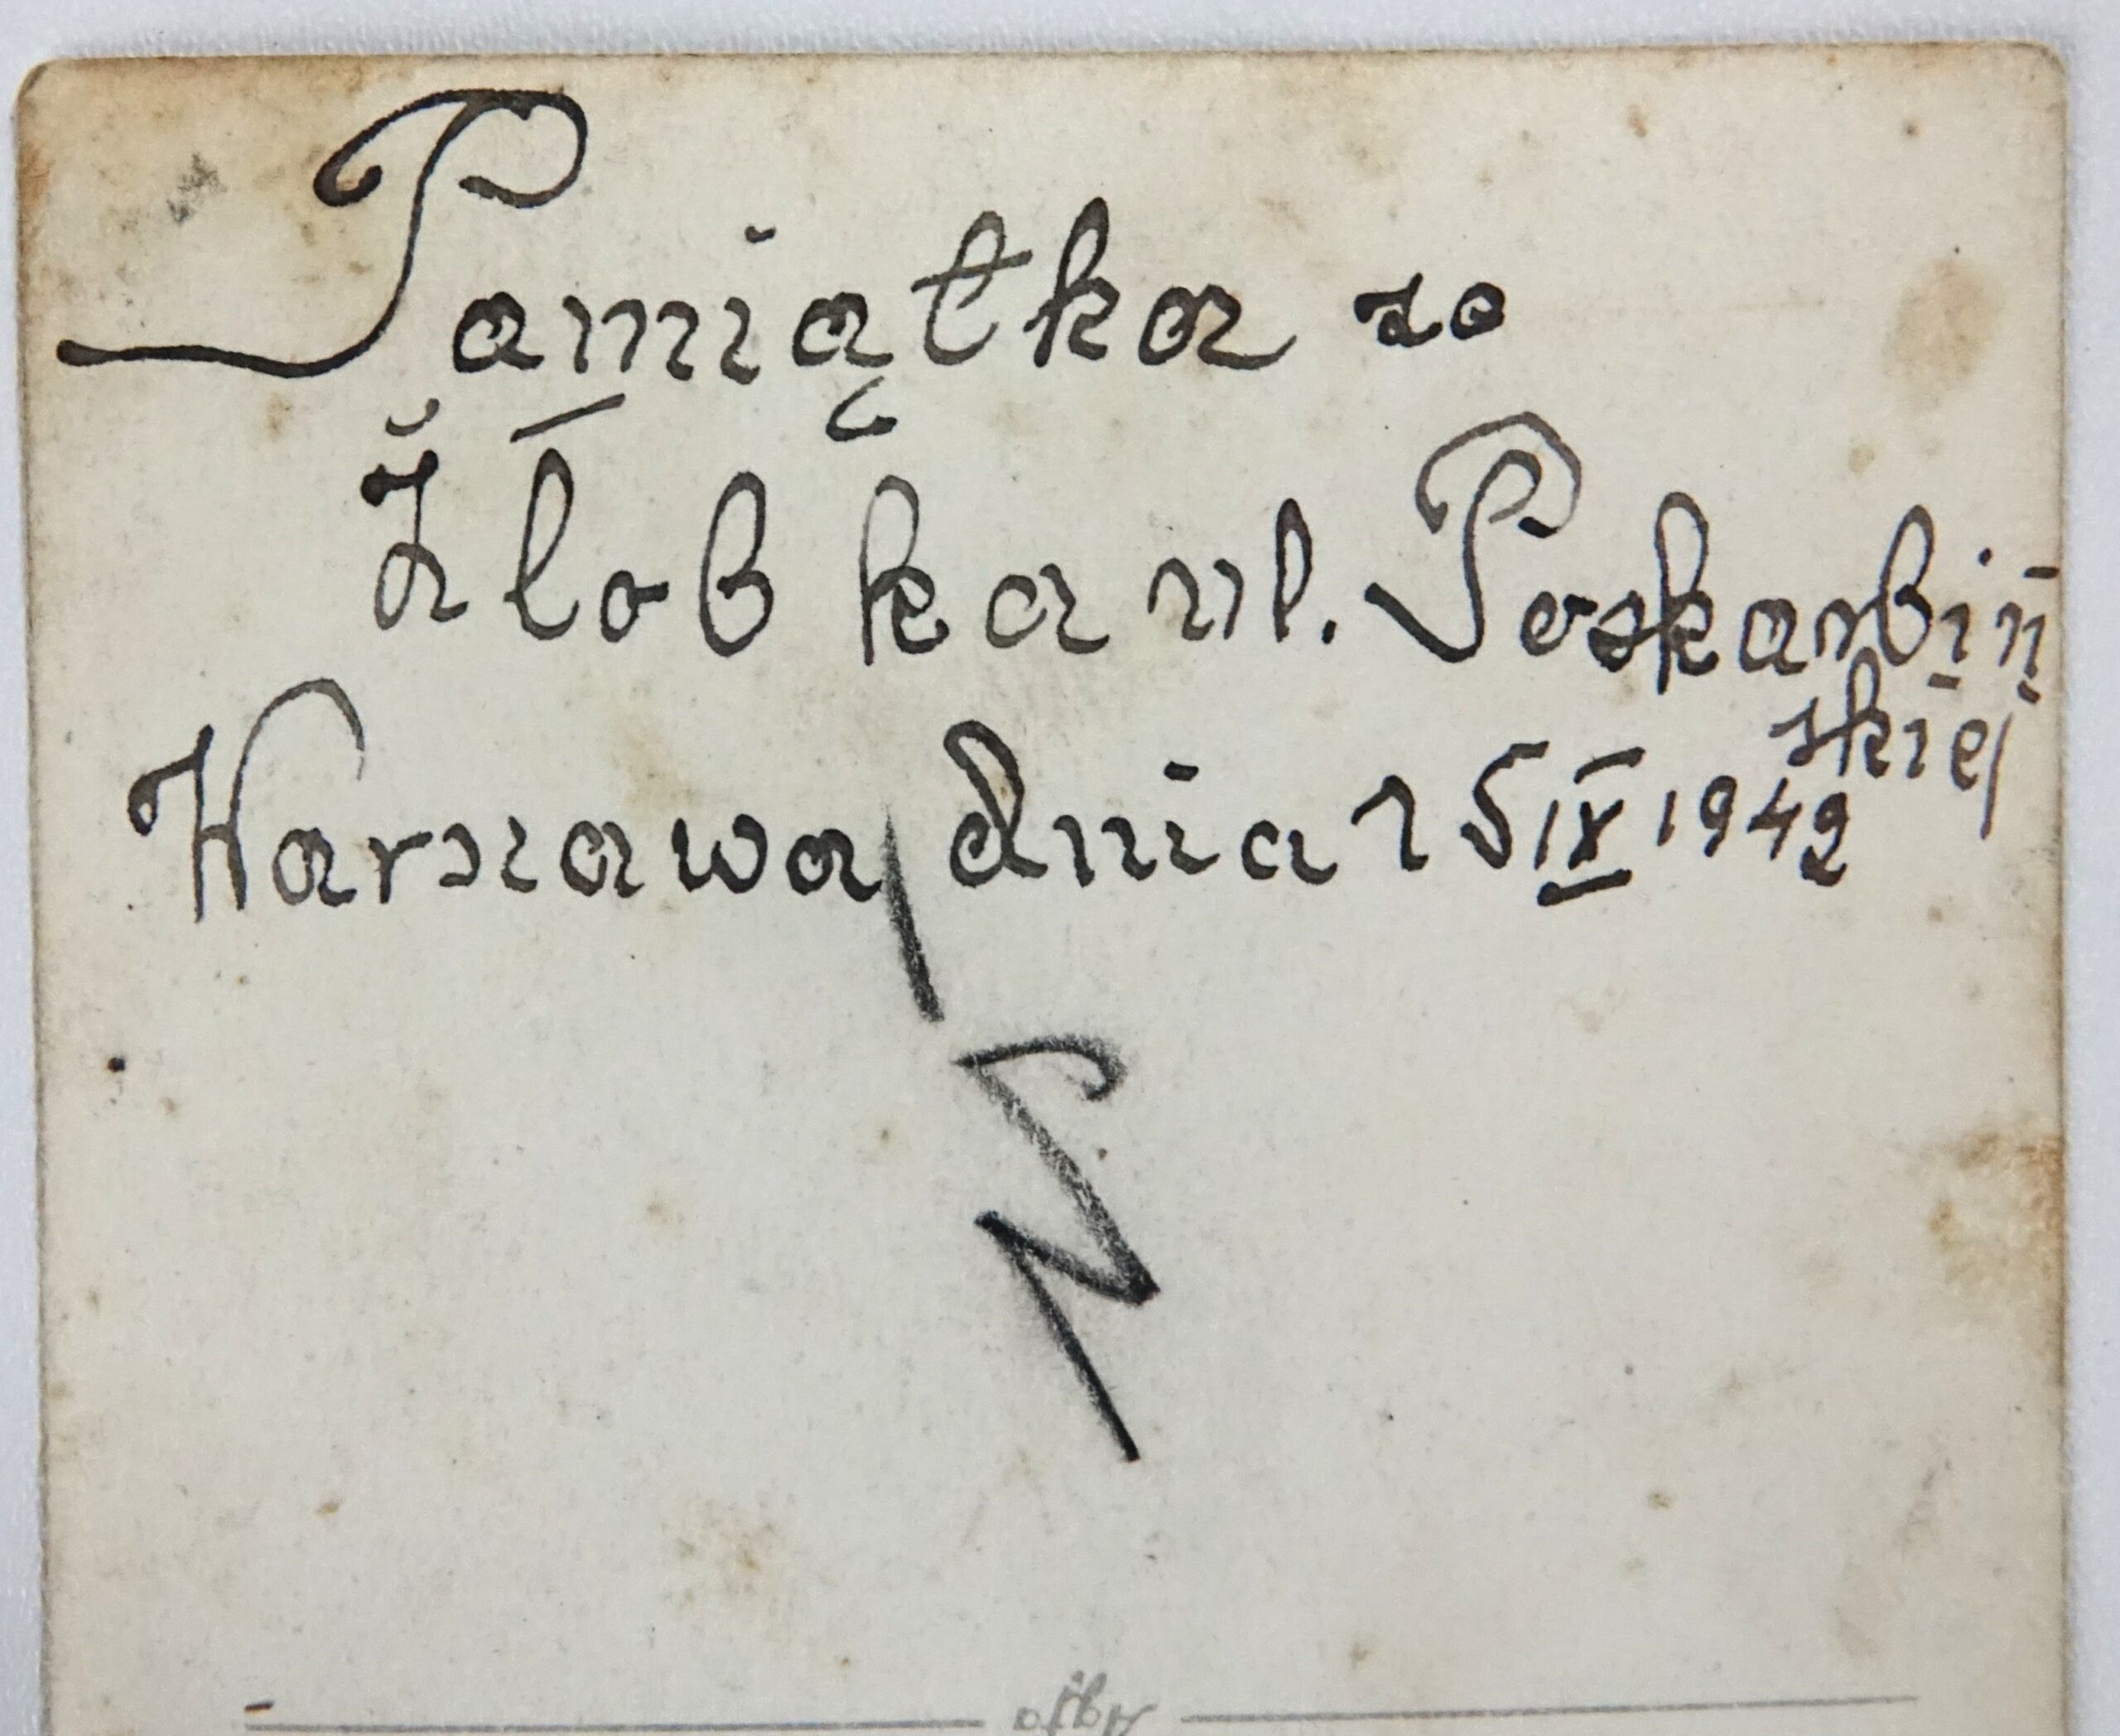 Pamiątka ze
Żłobka ul. Poskarbiń
skiej
Warszawa, dnia 15 IX 1942